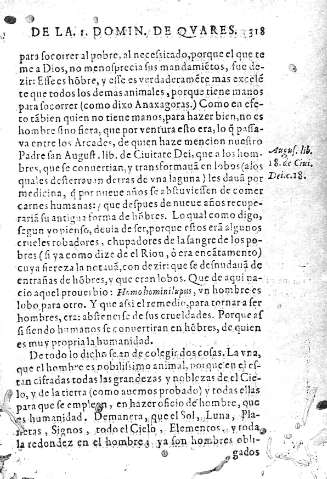 DE LA. 1. DOMIN. DE QVARES. 318
para socorrer al pobre, al necesitado, porque el que te
me a Dios, no menosprecia sus mandamiẽtos, fue de-
zir: Esse es hõbre, y esse es verdaderamẽte mas excelẽ
te que todos los demas animales, porque tiene manos
para socorrer (como dixo Anaxagoras.) Como en efe-
to tãbien quien no tiene manos, para hazer bien, no es
hombre sino fiera, que por ventura esto era, lo q̃ passa-
va entre los Arcades, de quien haze mencion nuestro
Padre san August. lib. de Ciuitate Dei, que a los hom-
bres, que se conuertian, y transformauã en lobos (a los
quales desterrauan detras de vna laguna) les dauã por
medicina, q̃ por nueue años se abstuuiessen de comer
carnes humanas: y que despues de nueue años recupe-
rariã su antigua forma de hõbres. Lo qual como digo,
segun yo pienso, deuia de ser, porque estos erã algunos
crueles robadores, chupadores de la sangre de los po-
bres (si ya como dize el Rio, ò era encãtamento)
cuya fiereza la notauã, con dezir: que se desnudauã de
entrañas de hõbres, y que eran lobos. Que de aqui na-
cio aquel prouerbio: Homo homini lupus, vn hombre es
lobo, para otro. Y que assi el remedio, para tornar a ser
hombres, era: abstenerse de sus crueldades. Porque as-
si siendo humanos se conuertiran en hõbres, de quien
es muy propria la humanidad.
Augus. lib.
18. de Ciui.
Dei. c. 18.
De todo lo dicho se an de colegir dos cosas. La vna,
que el hombre es nobilissimo animal, porque en el es-
tan cifradas todas las grandezas y noblezas de el Cie-
lo, y de la tierra (como auemos probado) y todas ellas
para que se empleen, en hazer oficio de hombre, que
es humanidad. De manera, que el Sol, Luna, Pla-
netas, Signos, todo el Cielo, Elementos, y toda
la redondez en el hombre, ya son hombres obli-
gados